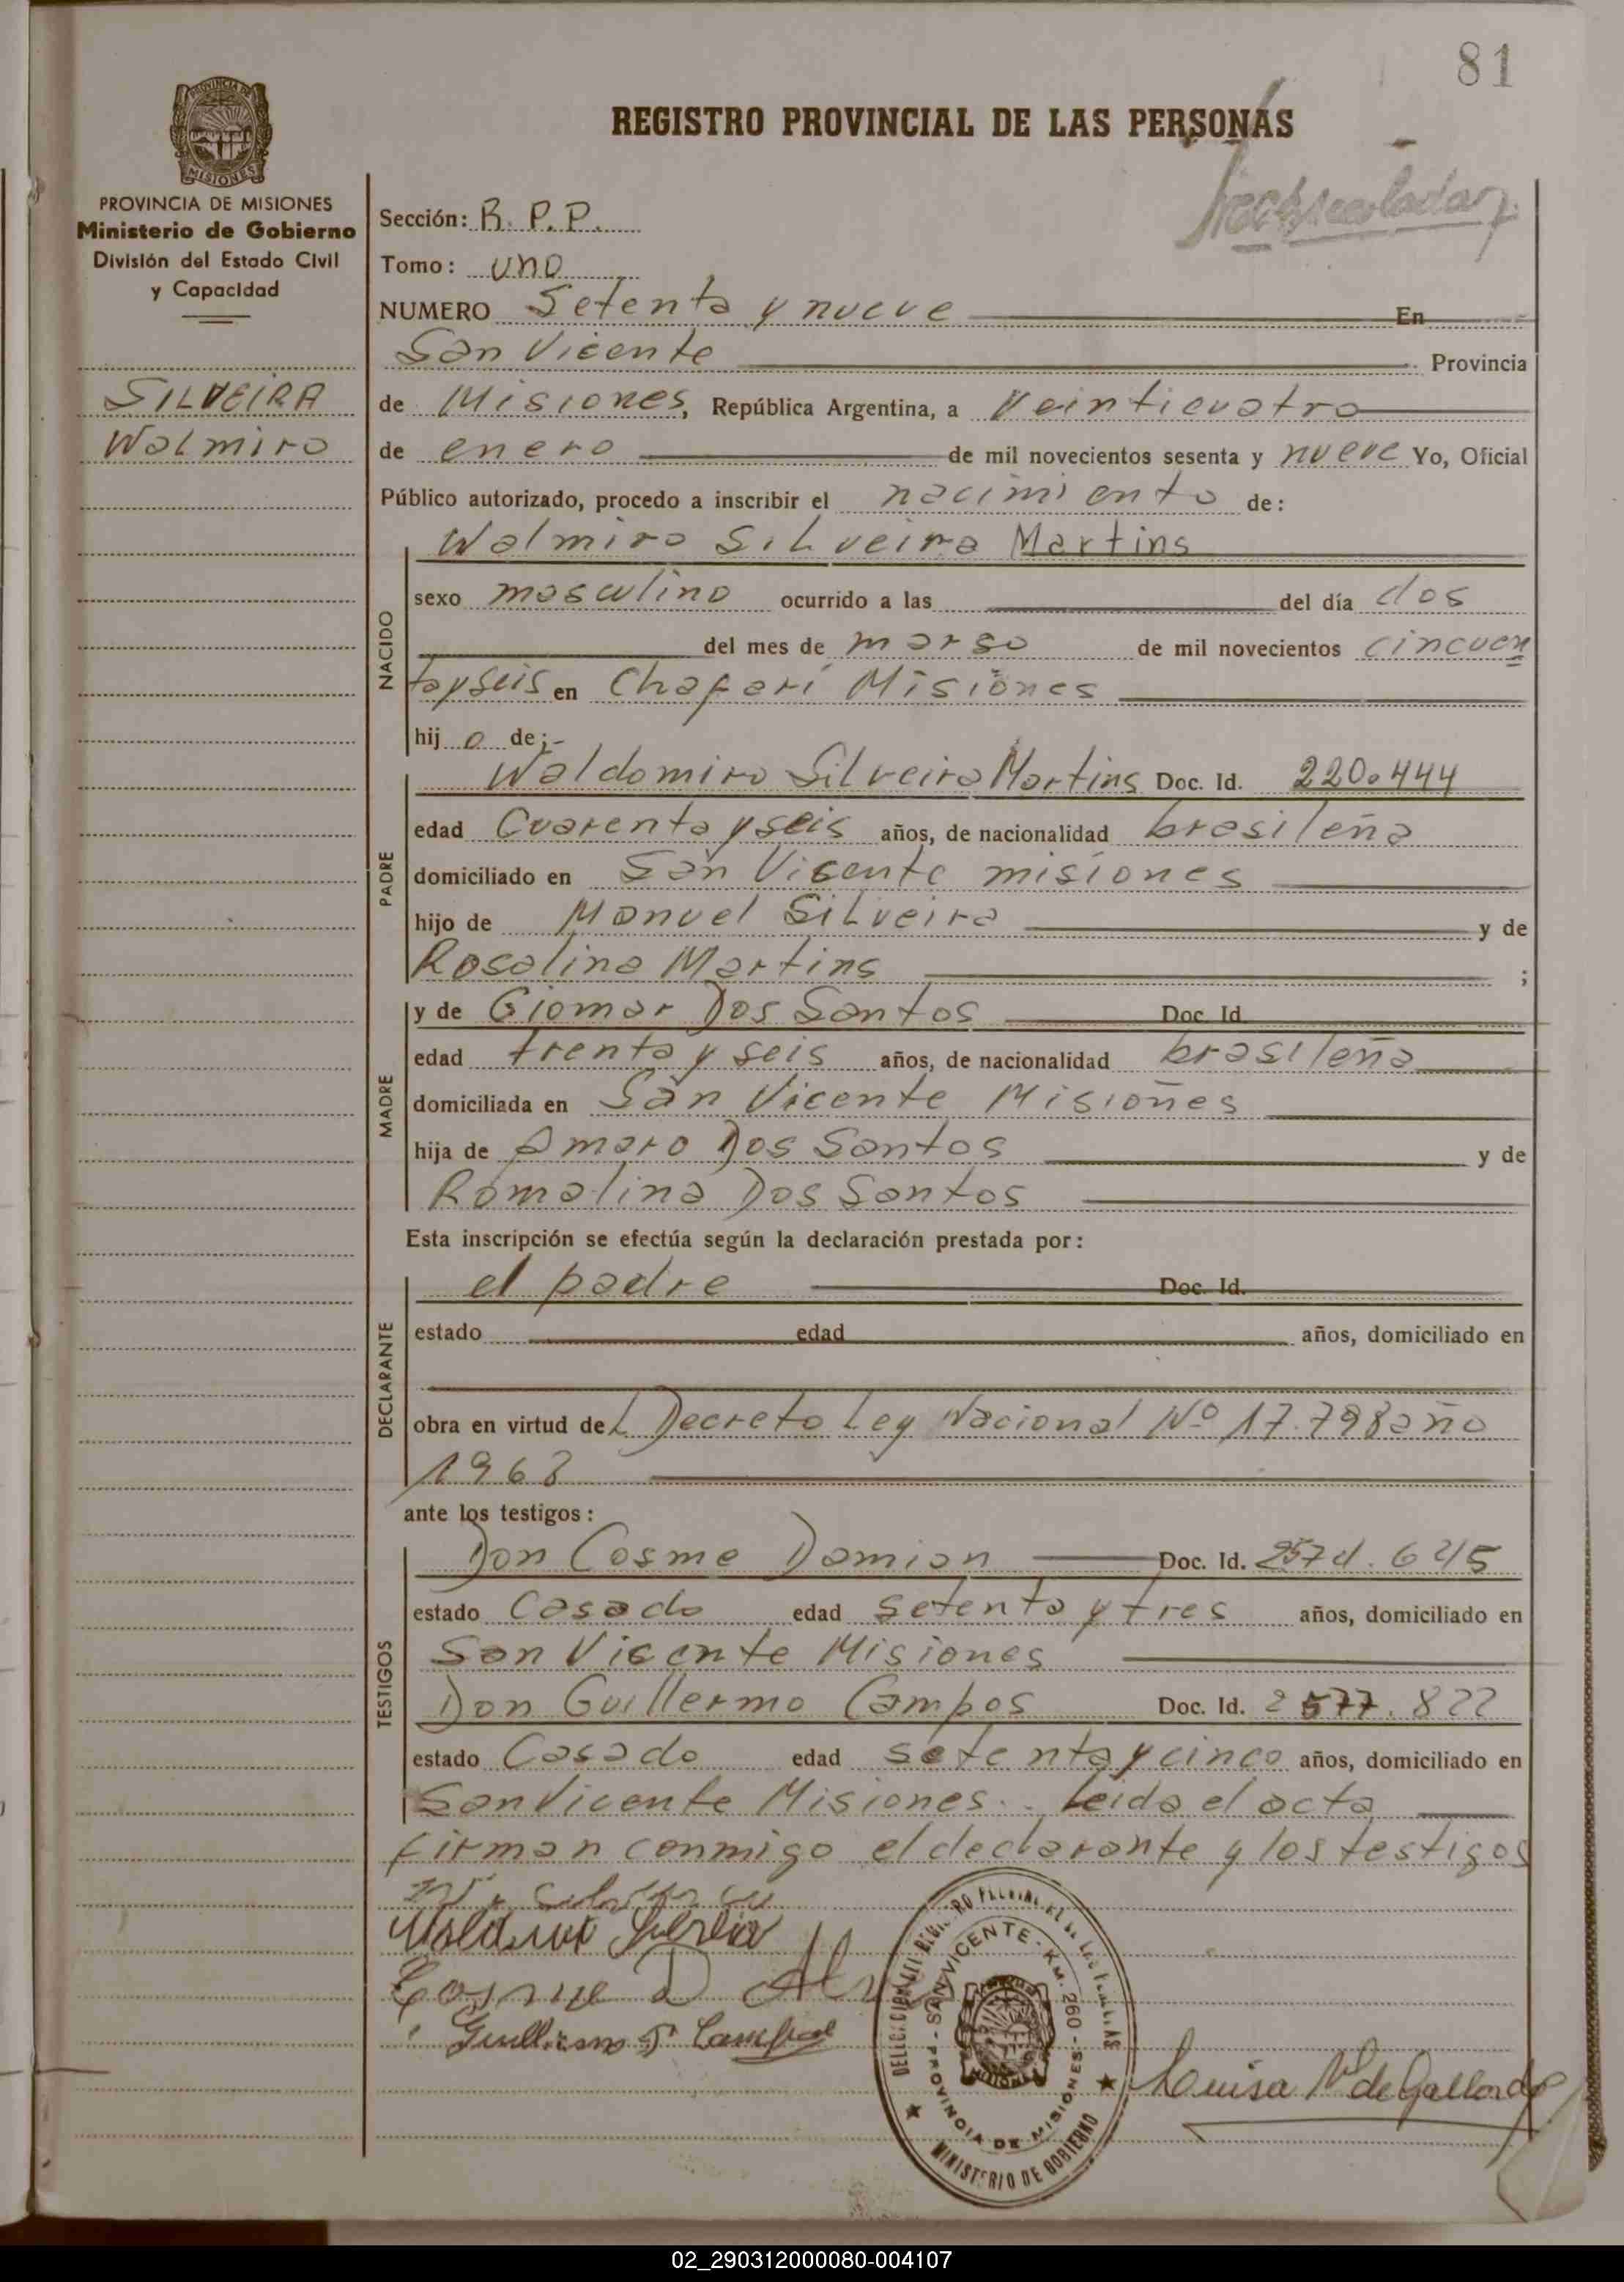 81
REGISTRO PROVINCIAL DE LAS PERSONAS
PROVINCIA DE MISIONES
Ministerio de Gobierno
División del Estado Civil
y Capacidad
SILVEIRA
Walmiro
Sección: R. P. P.
Tomo: uno
NUMERO Setenta y nueve En
San Vicente Provincia
de Misiones, República Argentina, a Veinticuatro
de enero de mil novecientos sesenta y nueve Yo, Oficial
Público autorizado, procedo a inscribir el nacimiento de:
NACIDO
Walmiro Silveira Martins
sexo masculino ocurrido a las del día dos
del mes de marso de mil novecientos cincuen
tayseis en Chafari Misiones
hij o de;-
PADRE
Waldomiro Silveira Martins Doc. Id. 220.444
edad Cuarenta y seis años, de nacionalidad brasileña
domiciliado en San Vicente misiones
hijo de Manuel Silveira y de
Rosalina Martins ;
MADRE
y de Giomar Dos Santos Doc. Id.
edad trenta y seis años, de nacionalidad brasileña
domiciliada en San Vicente Misiones
hija de Amaro Dos Santos y de
Romalina Dos Santos
Esta inscripción se efectúa según la declaración prestada por:
DECLARANTE
el padre Doc. Id.
estado edad años, domiciliado en
obra en virtud del Decreto Ley Nacional Nº 17.798 año
1968
ante los testigos:
TESTIGOS
Don Cosme Damian Doc. Id. 2574.645
estado Casado edad Setenta y tres años, domiciliado en
San Vicente Misiones
Don Guillermo Campos Doc. Id. 2577.822
estado Casado edad setenta y cinco años, domiciliado en
San Vicente Misiones. Leida el acta
firman conmigo el declarante y los testigos
Cosme D
Guillermo Campos
SAN VICENTE - KM. 260 - PROVINCIA DE MISIONES
MINISTERIO DE GOBIERNO
Luisa de Gallardo
02_290312000080-004107